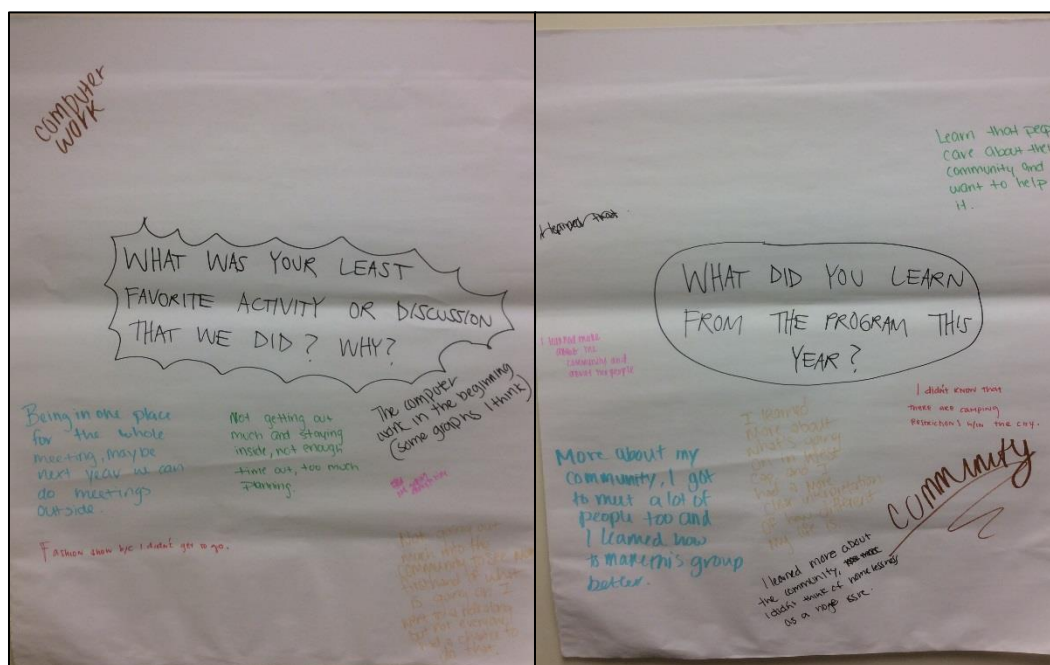 computer
work
WHAT WAS YOUR LEAST
FAVORITE ACTIVITY OR DISCUSSION
THAT WE DID? WHY?
Being in one place
for the whole
meeting, maybe
next year we can
do meetings
outside.
Not getting out
much and staying
inside, not enough
time out, too much
planning.
The computer
work in the beginning
(some graphs I think)
Fashion show b/c I didn't get to go.
Not going out
community to see
firsthand of what
is going on. I
Learn that peop
care about thei
community and
want to help
it.
I learned that
WHAT DID YOU LEARN
FROM THE PROGRAM THIS
YEAR?
I learned more
about the
community and
about the people
I didn't know that
there are camping
restrictions w/in the city.
More about my
community, I got
to meet a lot of
people too and
I learned how
to make this group
better.
I learned
more about
what's going
COMMUNITY
I learned more about
the community,
I didn't think of homelessness
as a huge issue.